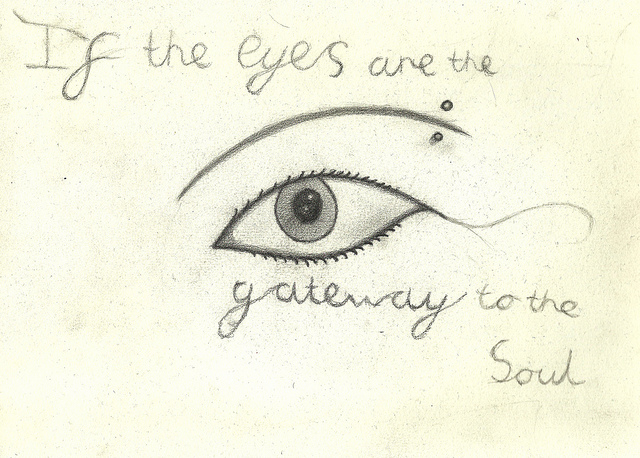 If the eyes are the
gateway to the
Soul